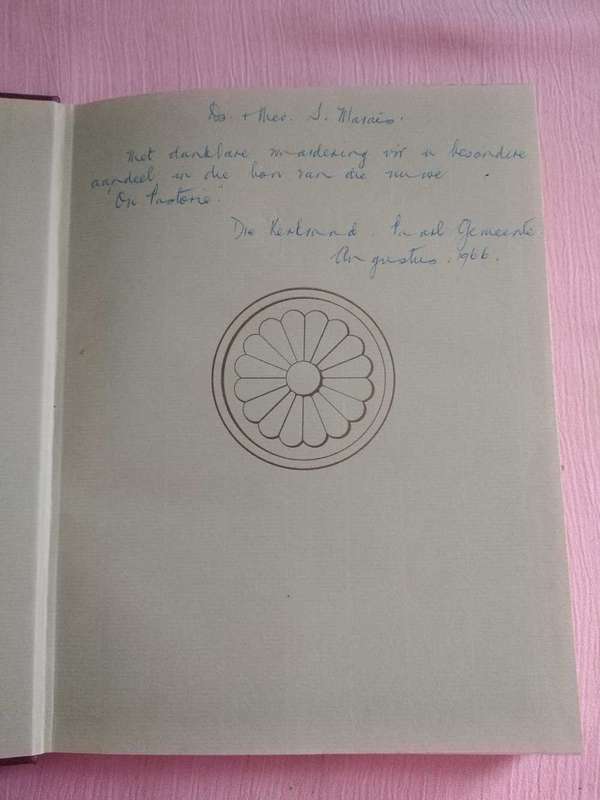 Ds. + Mev. J. Marais.
Met dankbare waardering vir u besondere
aandeel in die bou van die nuwe
"Ou Pastorie".
Die Kerkraad. Paarl Gemeente.
Augustus. 1966.